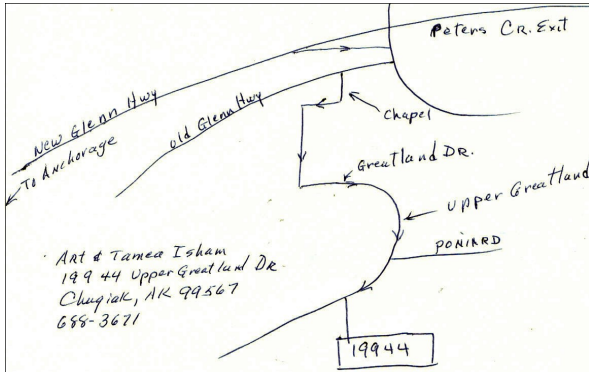 Peters CR. Exit
New Glenn Hwy
old Glenn Hwy
To Anchorage
Chapel
Greatland DR.
Upper Greatland
PONIARD
Art & Tamea Isham
19944 Upper Greatland DR.
Chugiak, AK 99567
688-3671
19944